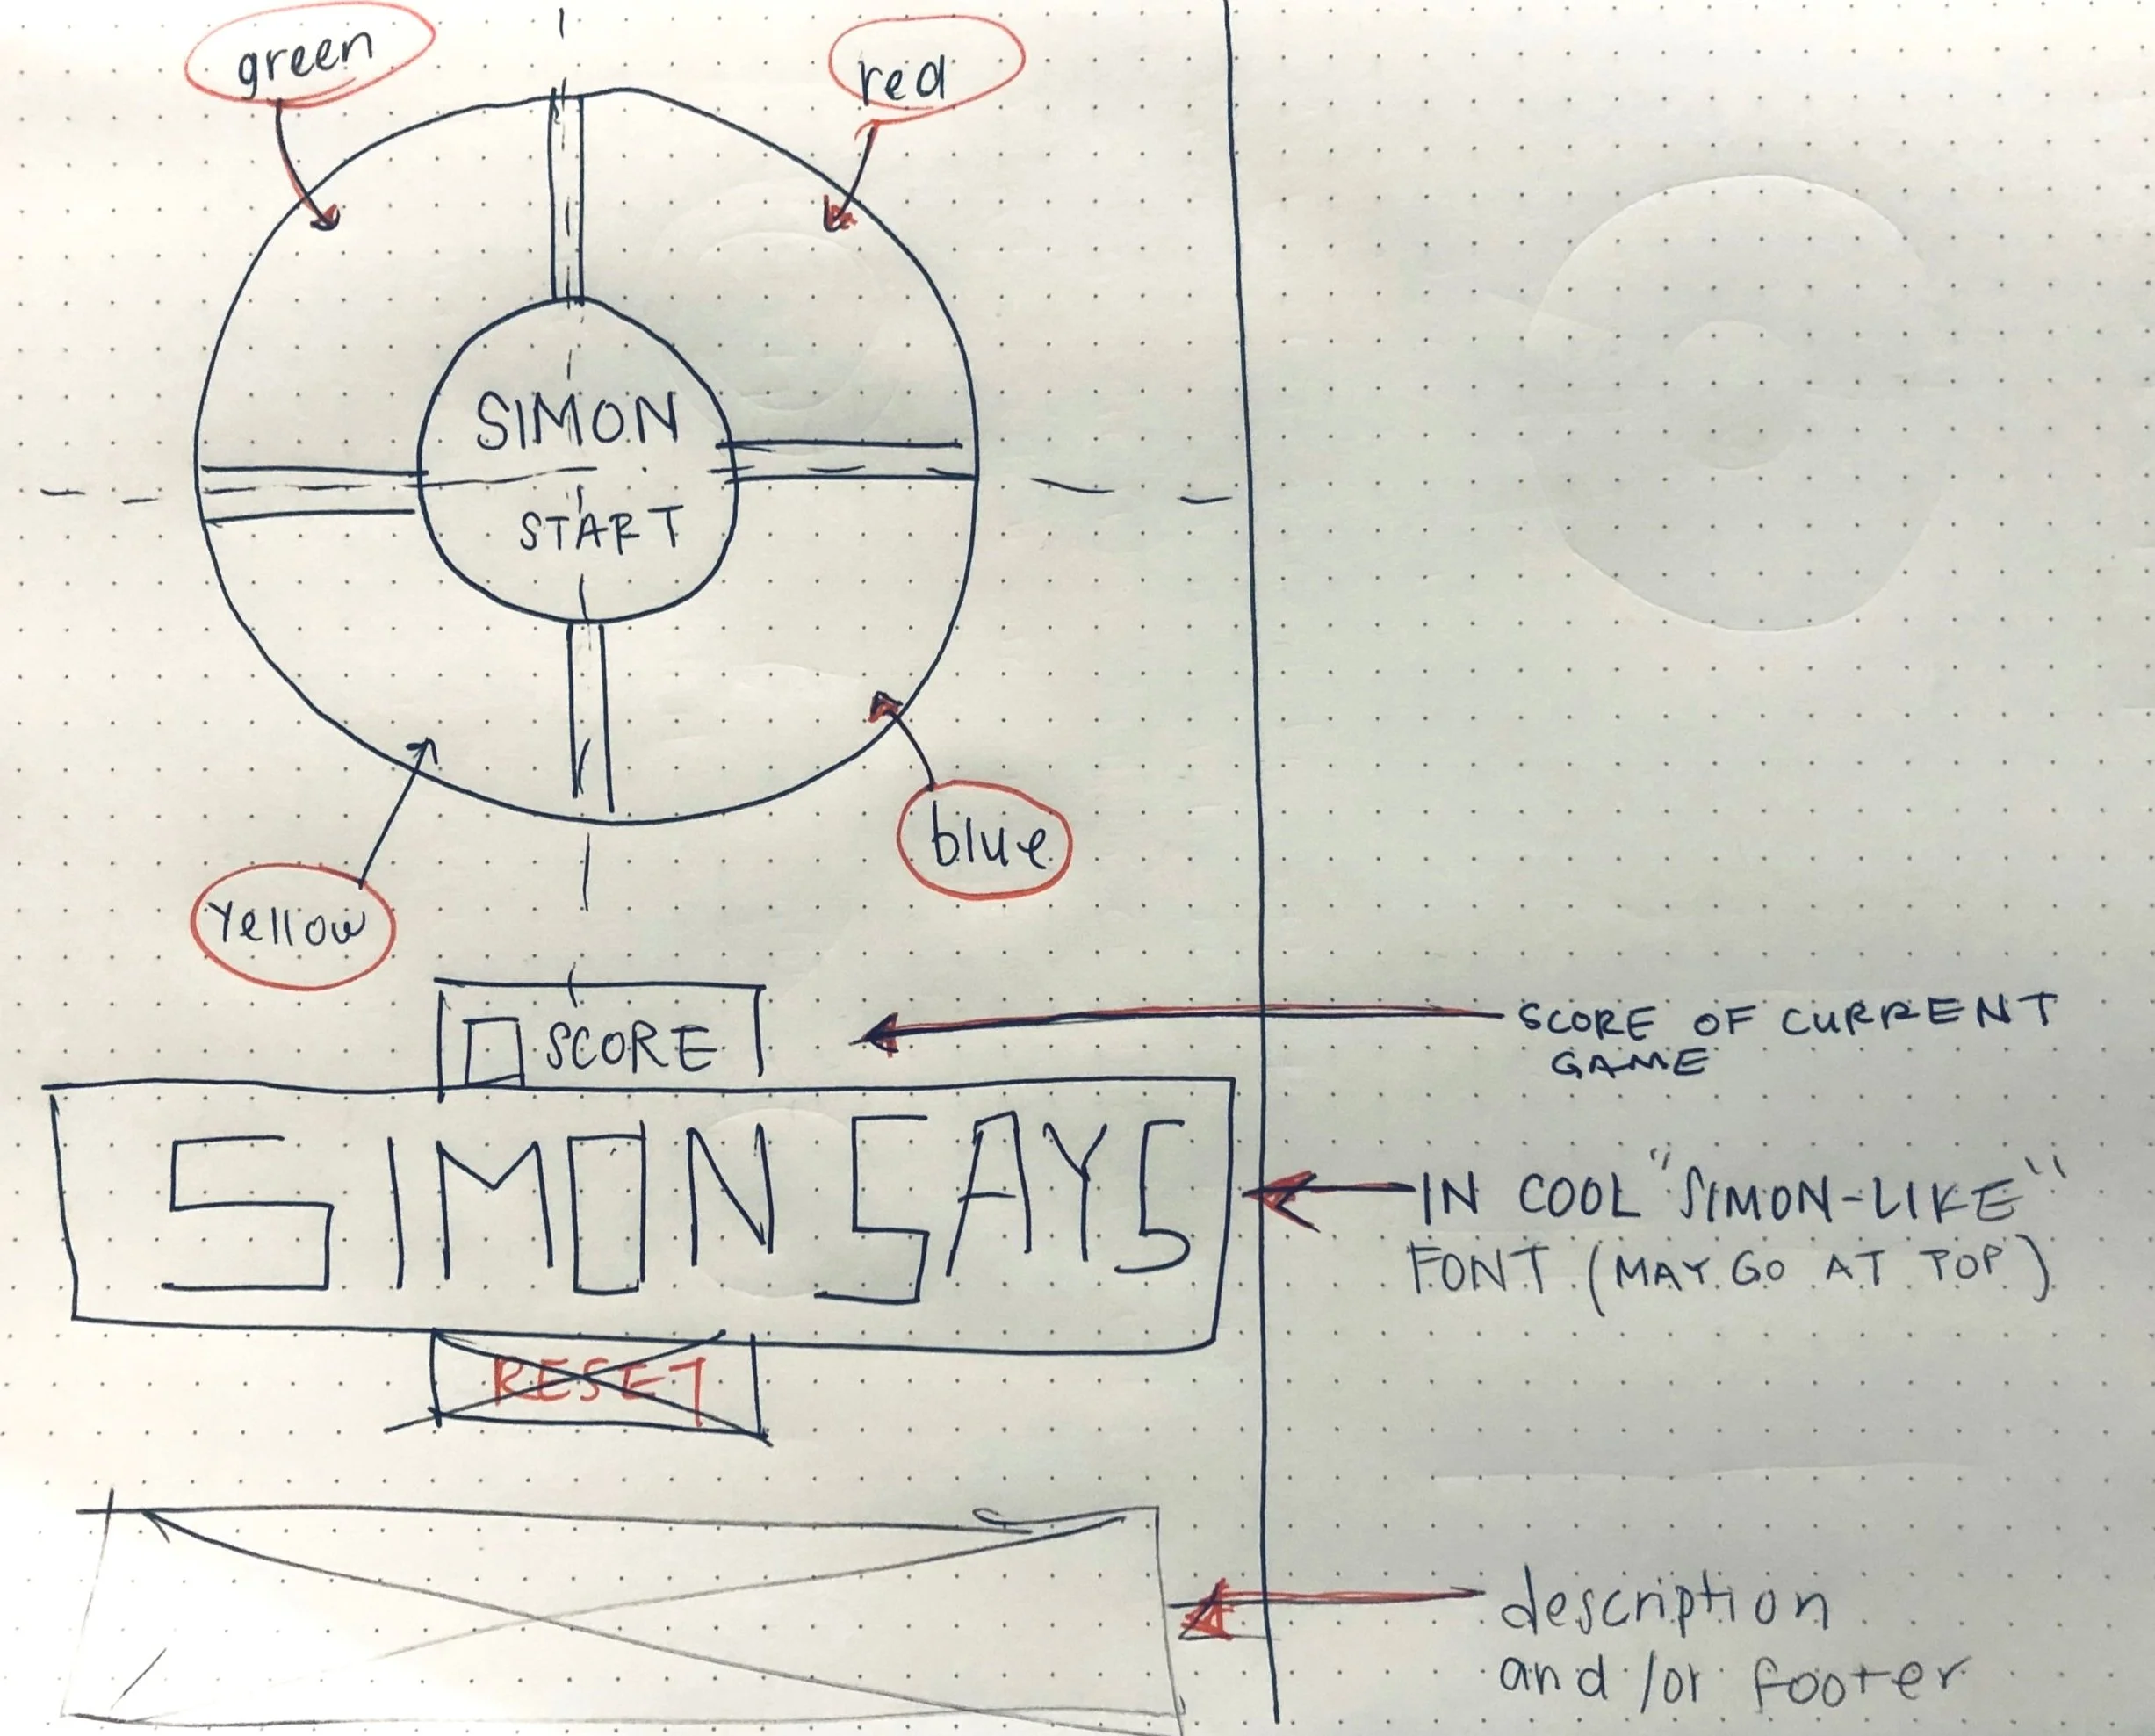 green
red
SIMON
START
blue
Yellow
SCORE
SCORE OF CURRENT
GAME
SIMON SAYS
IN COOL "SIMON-LIKE"
FONT (MAY GO AT TOP)
RESET
description
and/or footer